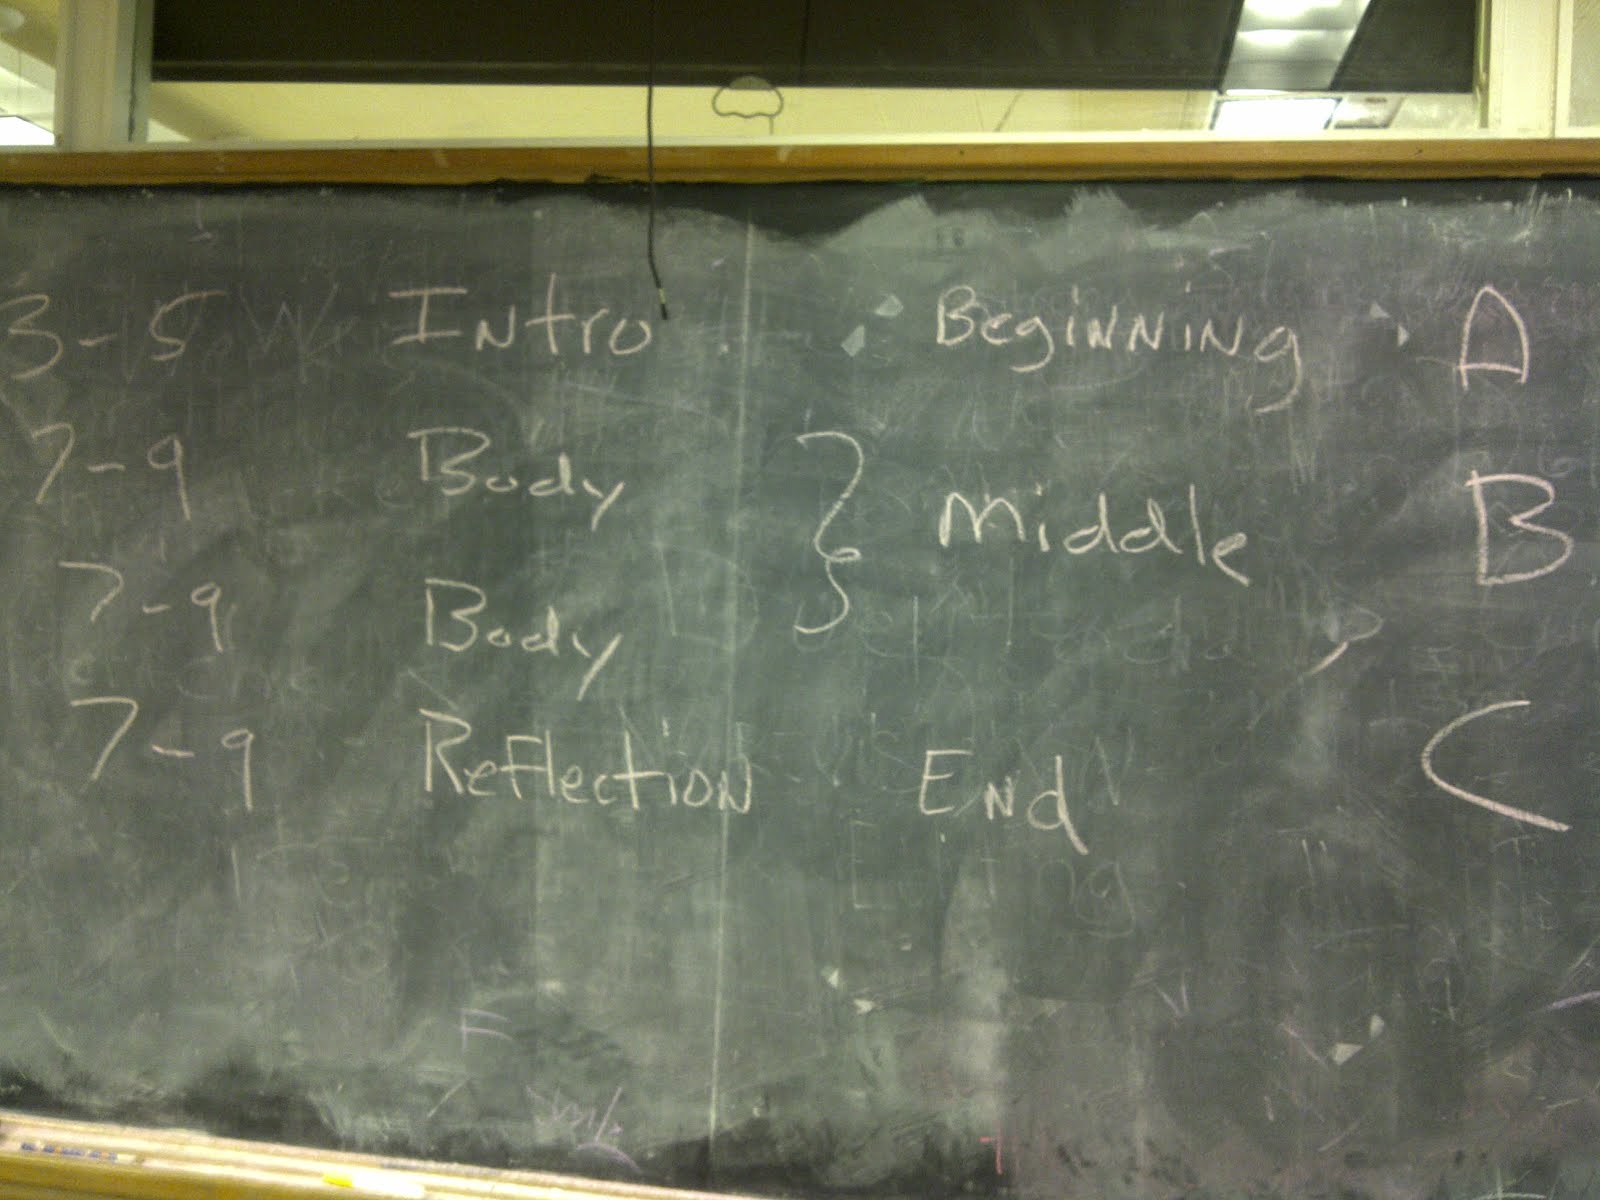 3-5 Intro Beginning A
7-9 Body
Middle B
7-9 Body
7-9 Reflection End C